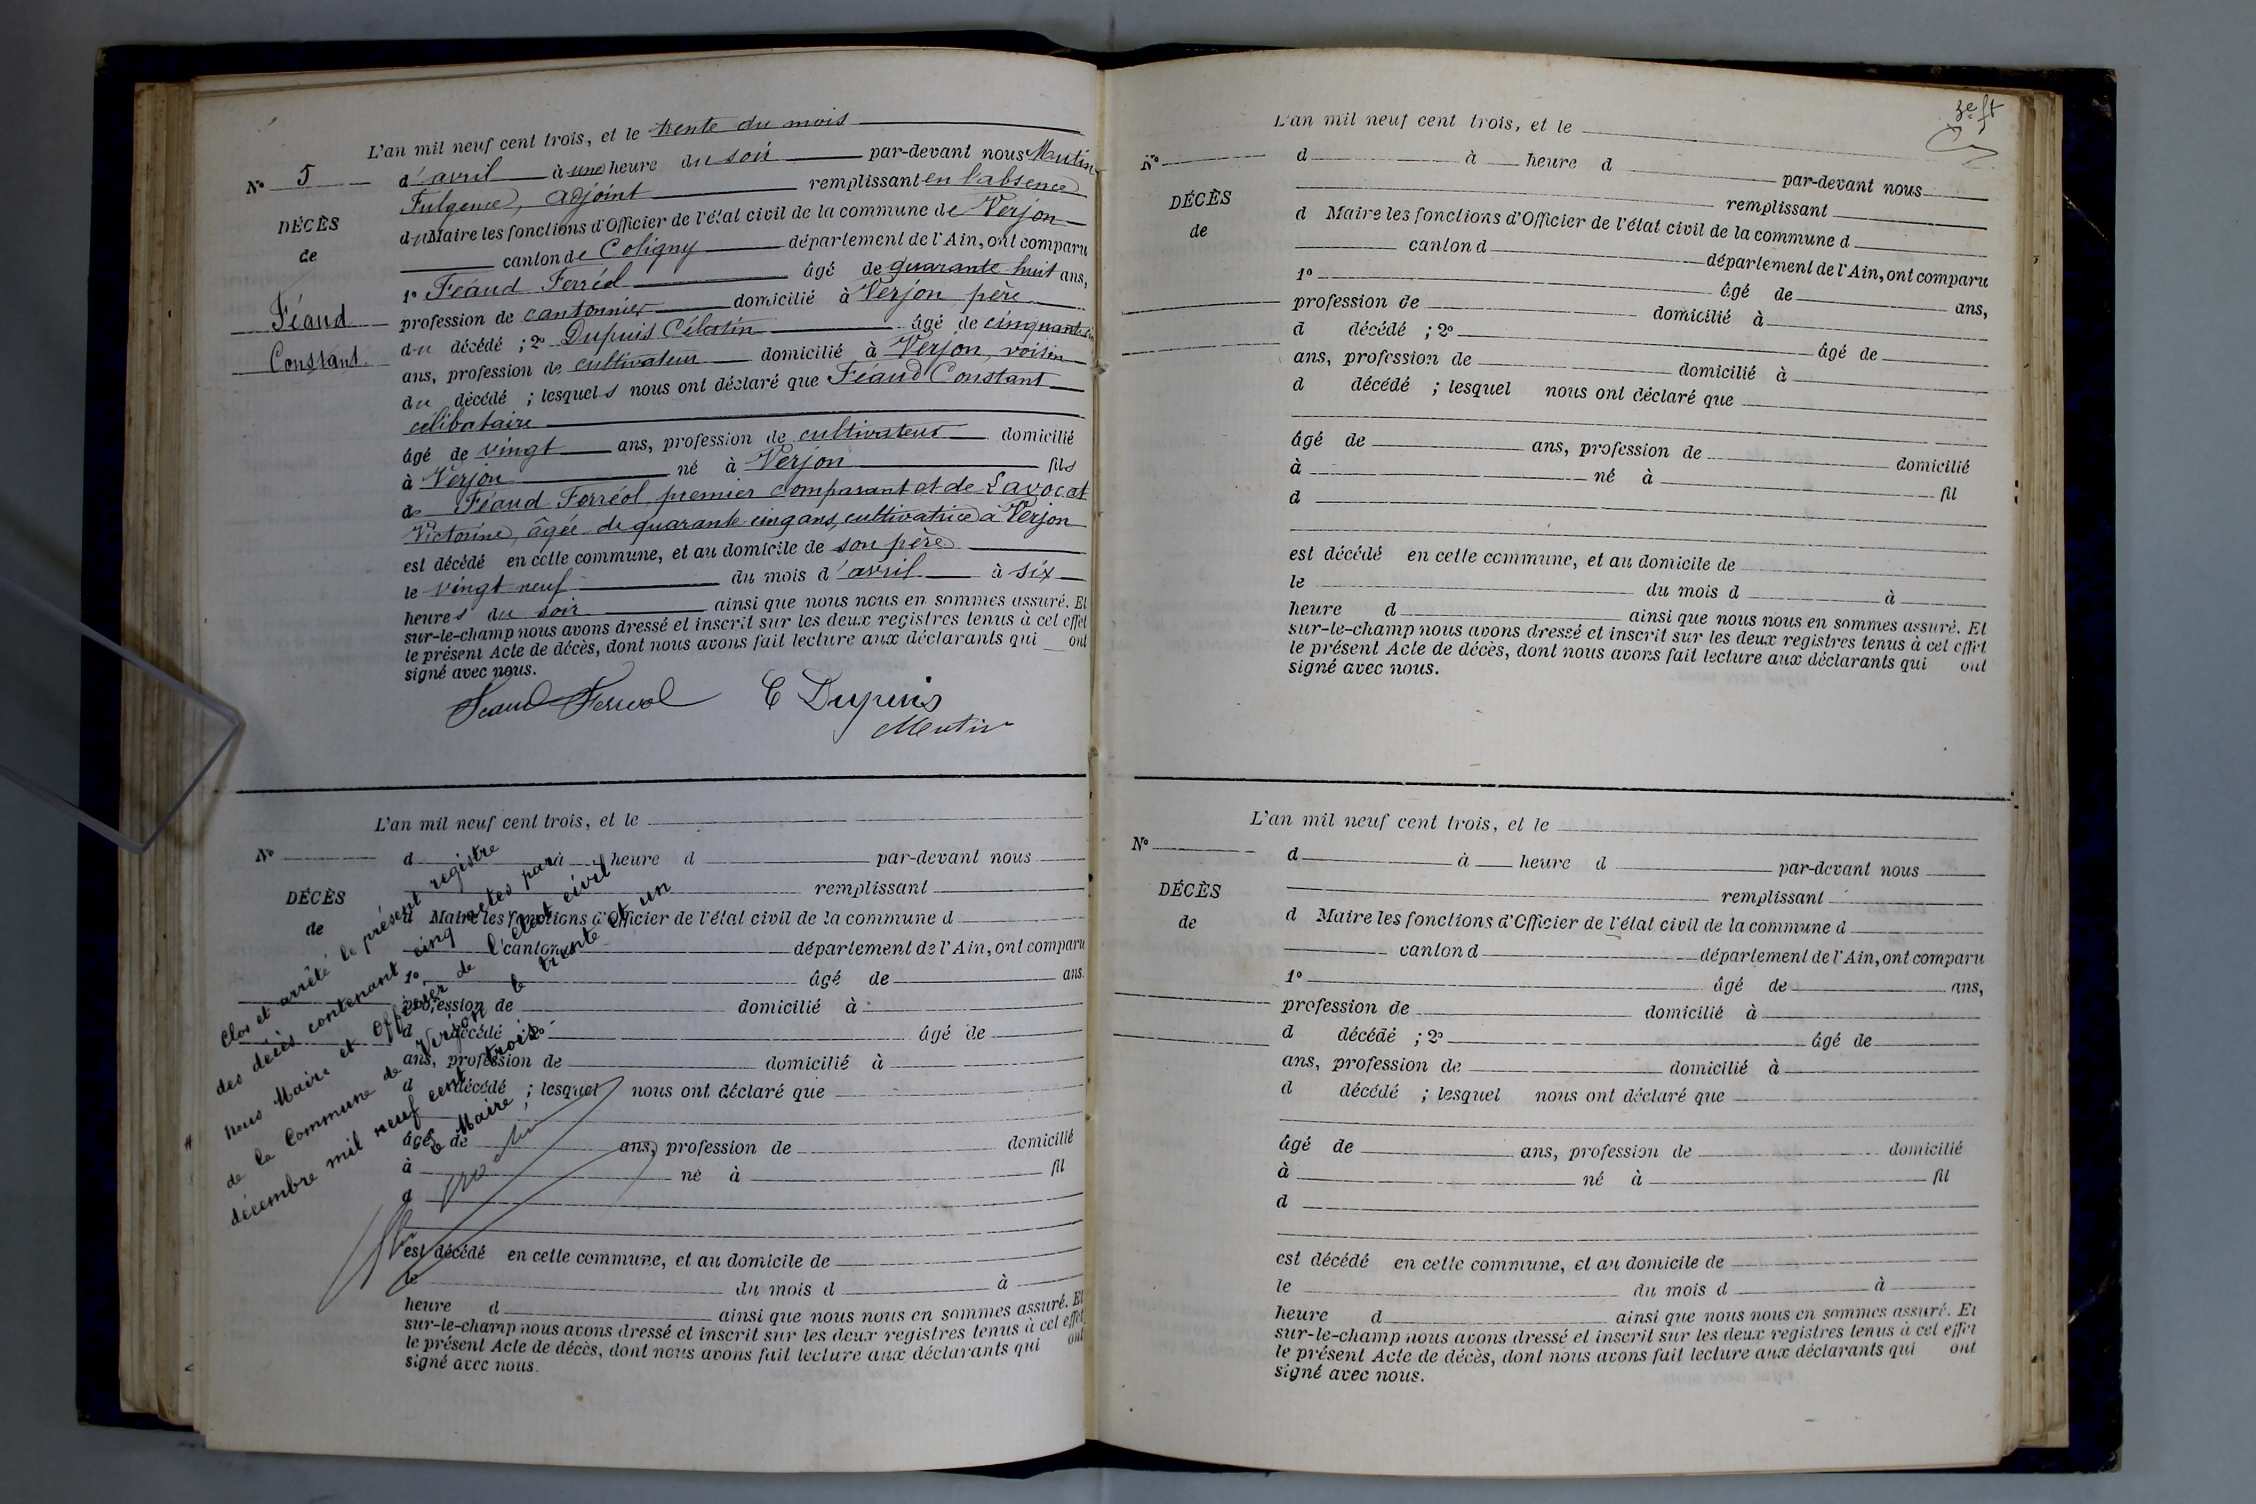 L'an mil neuf cent trois, et le trente du mois
N° 5 d'avril à une heure du soir par-devant nous Mentin
Fulgence, adjoint remplissant en l'absence
DÉCÈS du Maire les fonctions d'Officier de l'état civil de la commune de Verjon
de canton de Coligny département de l'Ain, ont comparu
1° Féaud Ferréol âgé de quarante huit ans,
Féaud profession de cantonnier domicilié à Verjon père
du décédé ; 2° Dupuis Célestin âgé de cinquante
Constant ans, profession de cultivateur domicilié à Verjon, voisin
du décédé ; lesquels nous ont déclaré que Féaud Constant
célibataire
âgé de vingt ans, profession de cultivateur domicilié
à Verjon né à Verjon fils
de Féaud Ferréol, premier comparant et de Lavocat
Victorine, âgée de quarante cinq ans, cultivatrice à Verjon
est décédé en cette commune, et au domicile de son père
le vingt neuf du mois d'avril à six
heures du soir ainsi que nous nous en sommes assuré. Et
sur-le-champ nous avons dressé et inscrit sur les deux registres tenus à cet effet
le présent Acte de décès, dont nous avons fait lecture aux déclarants qui ont
signé avec nous.
Féaud Ferréol C Dupuis
Mentin
L'an mil neuf cent trois, et le
N° d à heure d par-devant nous
remplissant
DÉCÈS d Maire les fonctions d'Officier de l'état civil de la commune d
de canton d département de l'Ain, ont comparu
1° âgé de ans,
profession de domicilié à
d décédé ; 2° âgé de
ans, profession de domicilié à
d décédé ; lesquel nous ont déclaré que
âgé de ans, profession de domicilié
à né à fil
d
est décédé en cette commune, et au domicile de
le du mois d à
heure d ainsi que nous nous en sommes assuré. Et
sur-le-champ nous avons dressé et inscrit sur les deux registres tenus à cet effet
le présent Acte de décès, dont nous avons fait lecture aux déclarants qui ont
signé avec nous.
Clos et arrêté le présent registre
des décès contenant cinq actes par
nous Maire et Officier de l'état civil
de la Commune de Verjon le trente et un
décembre mil neuf cent trois
Le Maire ;
3e ft
L'an mil neuf cent trois, et le
N° d à heure d par-devant nous
remplissant
DÉCÈS d Maire les fonctions d'Officier de l'état civil de la commune d
de canton d département de l'Ain, ont comparu
1° âgé de ans,
profession de domicilié à
d décédé ; 2° âgé de
ans, profession de domicilié à
d décédé ; lesquel nous ont déclaré que
âgé de ans, profession de domicilié
à né à fil
d
est décédé en cette commune, et au domicile de
le du mois d à
heure d ainsi que nous nous en sommes assuré. Et
sur-le-champ nous avons dressé et inscrit sur les deux registres tenus à cet effet
le présent Acte de décès, dont nous avons fait lecture aux déclarants qui ont
signé avec nous.
L'an mil neuf cent trois, et le
N° d à heure d par-devant nous
remplissant
DÉCÈS d Maire les fonctions d'Officier de l'état civil de la commune d
de canton d département de l'Ain, ont comparu
1° âgé de ans,
profession de domicilié à
d décédé ; 2° âgé de
ans, profession de domicilié à
d décédé ; lesquel nous ont déclaré que
âgé de ans, profession de domicilié
à né à fil
d
est décédé en cette commune, et au domicile de
le du mois d à
heure d ainsi que nous nous en sommes assuré. Et
sur-le-champ nous avons dressé et inscrit sur les deux registres tenus à cet effet
le présent Acte de décès, dont nous avons fait lecture aux déclarants qui ont
signé avec nous.